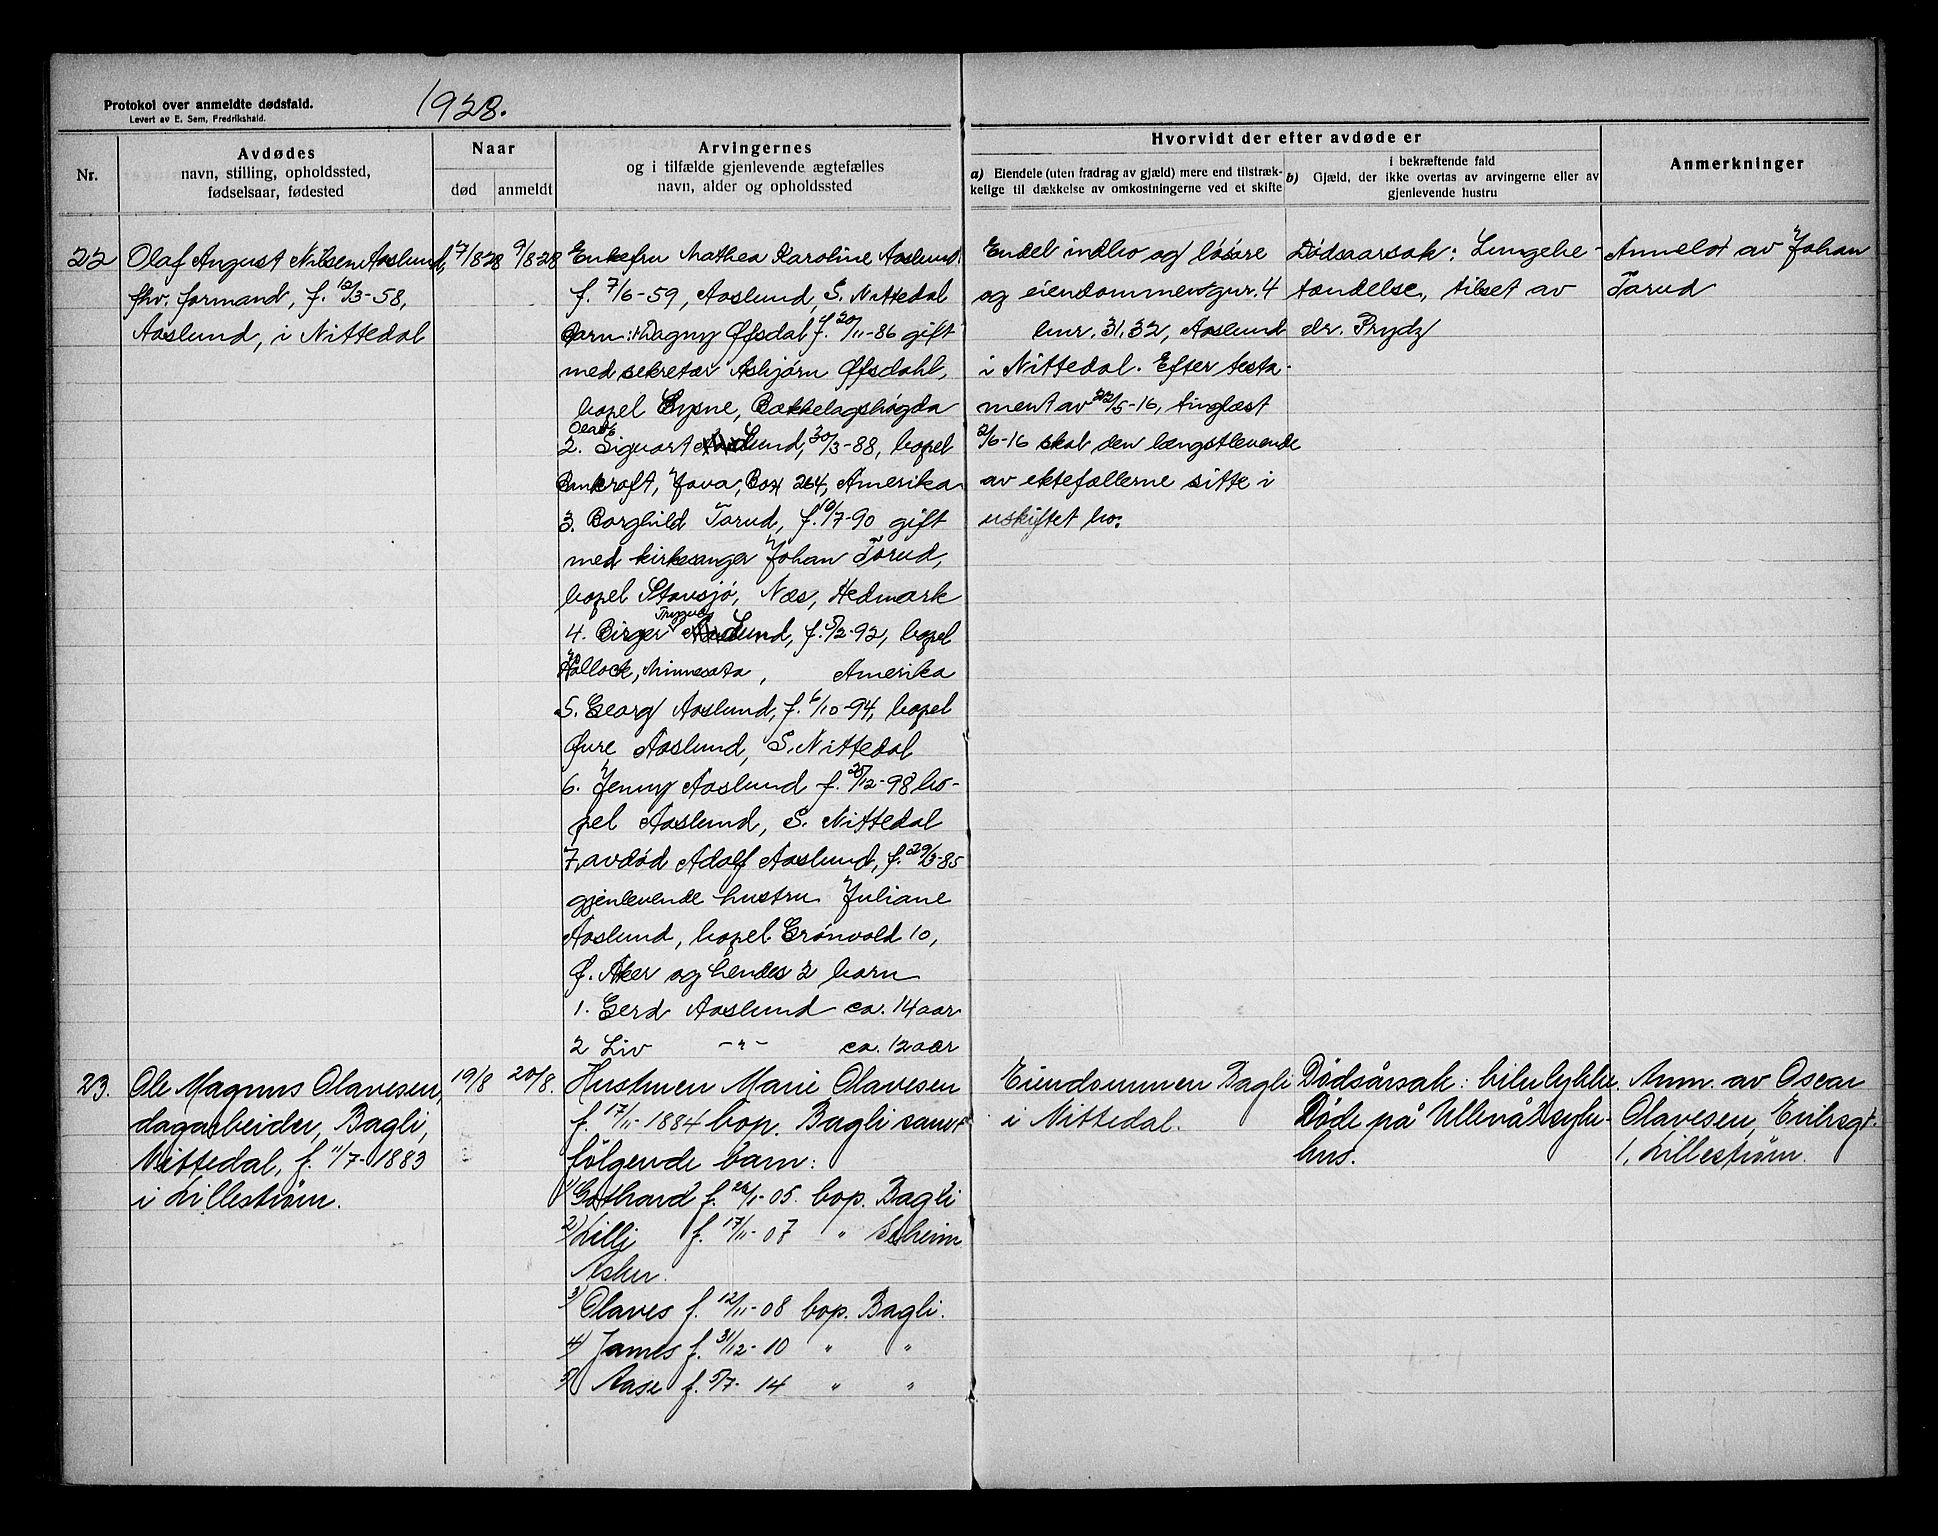 Protokol over anmeldte dødsfald.
Levert av E. Sem, Fredrikshald.
1928.
Nr.
Avdødes
navn, stilling, opholdssted,
fødselsaar, fødested
Naar
død
anmeldt
Arvingernes
og i tilfælde gjenlevende ægtefælles
navn, alder og opholdssted
Hvorvidt der efter avdøde er
a) Eiendele (uten fradrag av gjæld) mere end tilstræk-
kelige til dækkelse av omkostningerne ved et skifte
i bekræftende fald
b) Gjæld, der ikke overtas av arvingerne eller av
gjenlevende hustru
Anmerkninger
22
Olaf August Nilsen Aaslund,
fhv. formand, f. 12/3-58,
Aaslund, i Nittedal
7/8-28
9/8-28
Enkefru Mathea Karoline Aaslund
f. 7/6-59, Aaslund, S. Nittedal
Barn: 1. Dagny Øfsdal f. 20/11-86 gift
med sekretær Asbjørn Øfsdahl,
bopel Bækkelagshøgda
2. Siguart Lund, 30/3-88, bopel
Bankroft, Jova, Box 264, Amerika
3. Borghild Torud, f. 10/7-90 gift
med kirkesanger Johan Torud,
bopel Stavsjø, Næs, Hedmark
Trygve
4. Birger Lund, f. 5/2-92, bopel
Hallock, Minnesota, Amerika
5. Georg Aaslund, f. 6/10-94, bopel
Øvre Aaslund, S. Nittedal
6. Jenny Aaslund f. 25/12-98 bo-
pel Aaslund, S. Nittedal
7. avdød Adolf Aaslund, f. 29/3-85
gjenlevende hustru Juliane
Aaslund, bopel Grønvold 10,
Ø. Aker og hendes 2 barn
1. Gerd Aaslund ca. 14 aar
2 Liv -"- ca. 12 aar
Endel indbo og løsøre
og eiendommen gnr. 4
bnr. 31, 32, Aaslund
i Nittedal. Efter testa-
ment av 22/5-16, tinglæst
2/6-16 skal den længstlevende
av ektefællerne sitte i
uskiftet bo.
Dødsaarsak: Lungebe-
tændelse, tilset av
dr. Prydz
Anmeldt av Johan
Torud
23.
Ole Magnus Olavesen,
dagarbeider, Bagli,
Nittedal, f. 11/7-1883
i Lillestrøm.
19/8
20/8.
Hustruen Marie Olavesen
f. 17/11-1884 bop. Bagli samt
følgende barn:
1) Gothard f. 26/1-05. bop. Bagli
2) Lilli f. 17/11-07 "
Asker.
3) Olaves f. 12/11-08 bop. Bagli.
4) James f. 31/12-10 " "
5) Aase f. 5/7-14 " "
Eiendommen Bagli
i Nittedal.
Dødsårsak: bilulykke.
Døde på Ullevål syke-
hus.
Anm. av Oscar
Olavesen, Eriksgt.
1, Lillestrøm.